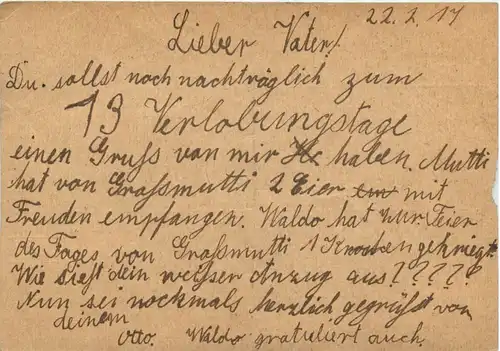 22. 2. 17
Lieber Vater!
Du sollst noch nachträglich zum
13 Verlobungstage
einen Gruss von mir haben. Mutti
hat von Grossmutti 2 Eier mit
Freuden empfangen. Waldo hat zur Feier
des Tages von Grossmutti 1 Knochen gekriegt.
Wie sieht dein weisser Anzug aus? ????
Nun sei nochmals herzlich gegrüsst von
deinem
Otto. Waldo gratuliert auch.